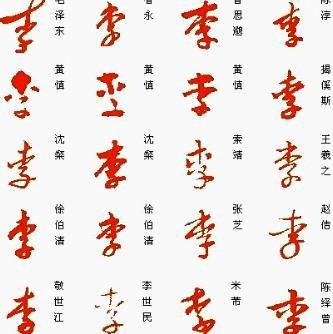 李 毛泽东
李 智永
李 曾思邈
李 陈淳
李 黄慎
李 黄慎
李 黄慎
李 揭傒斯
李 沈粲
李 沈粲
李 索靖
李 王羲之
李 徐伯清
李 徐伯清
李 张芝
李 赵佶
李 敬世江
李 李世民
李 米芾
李 陈绎曾